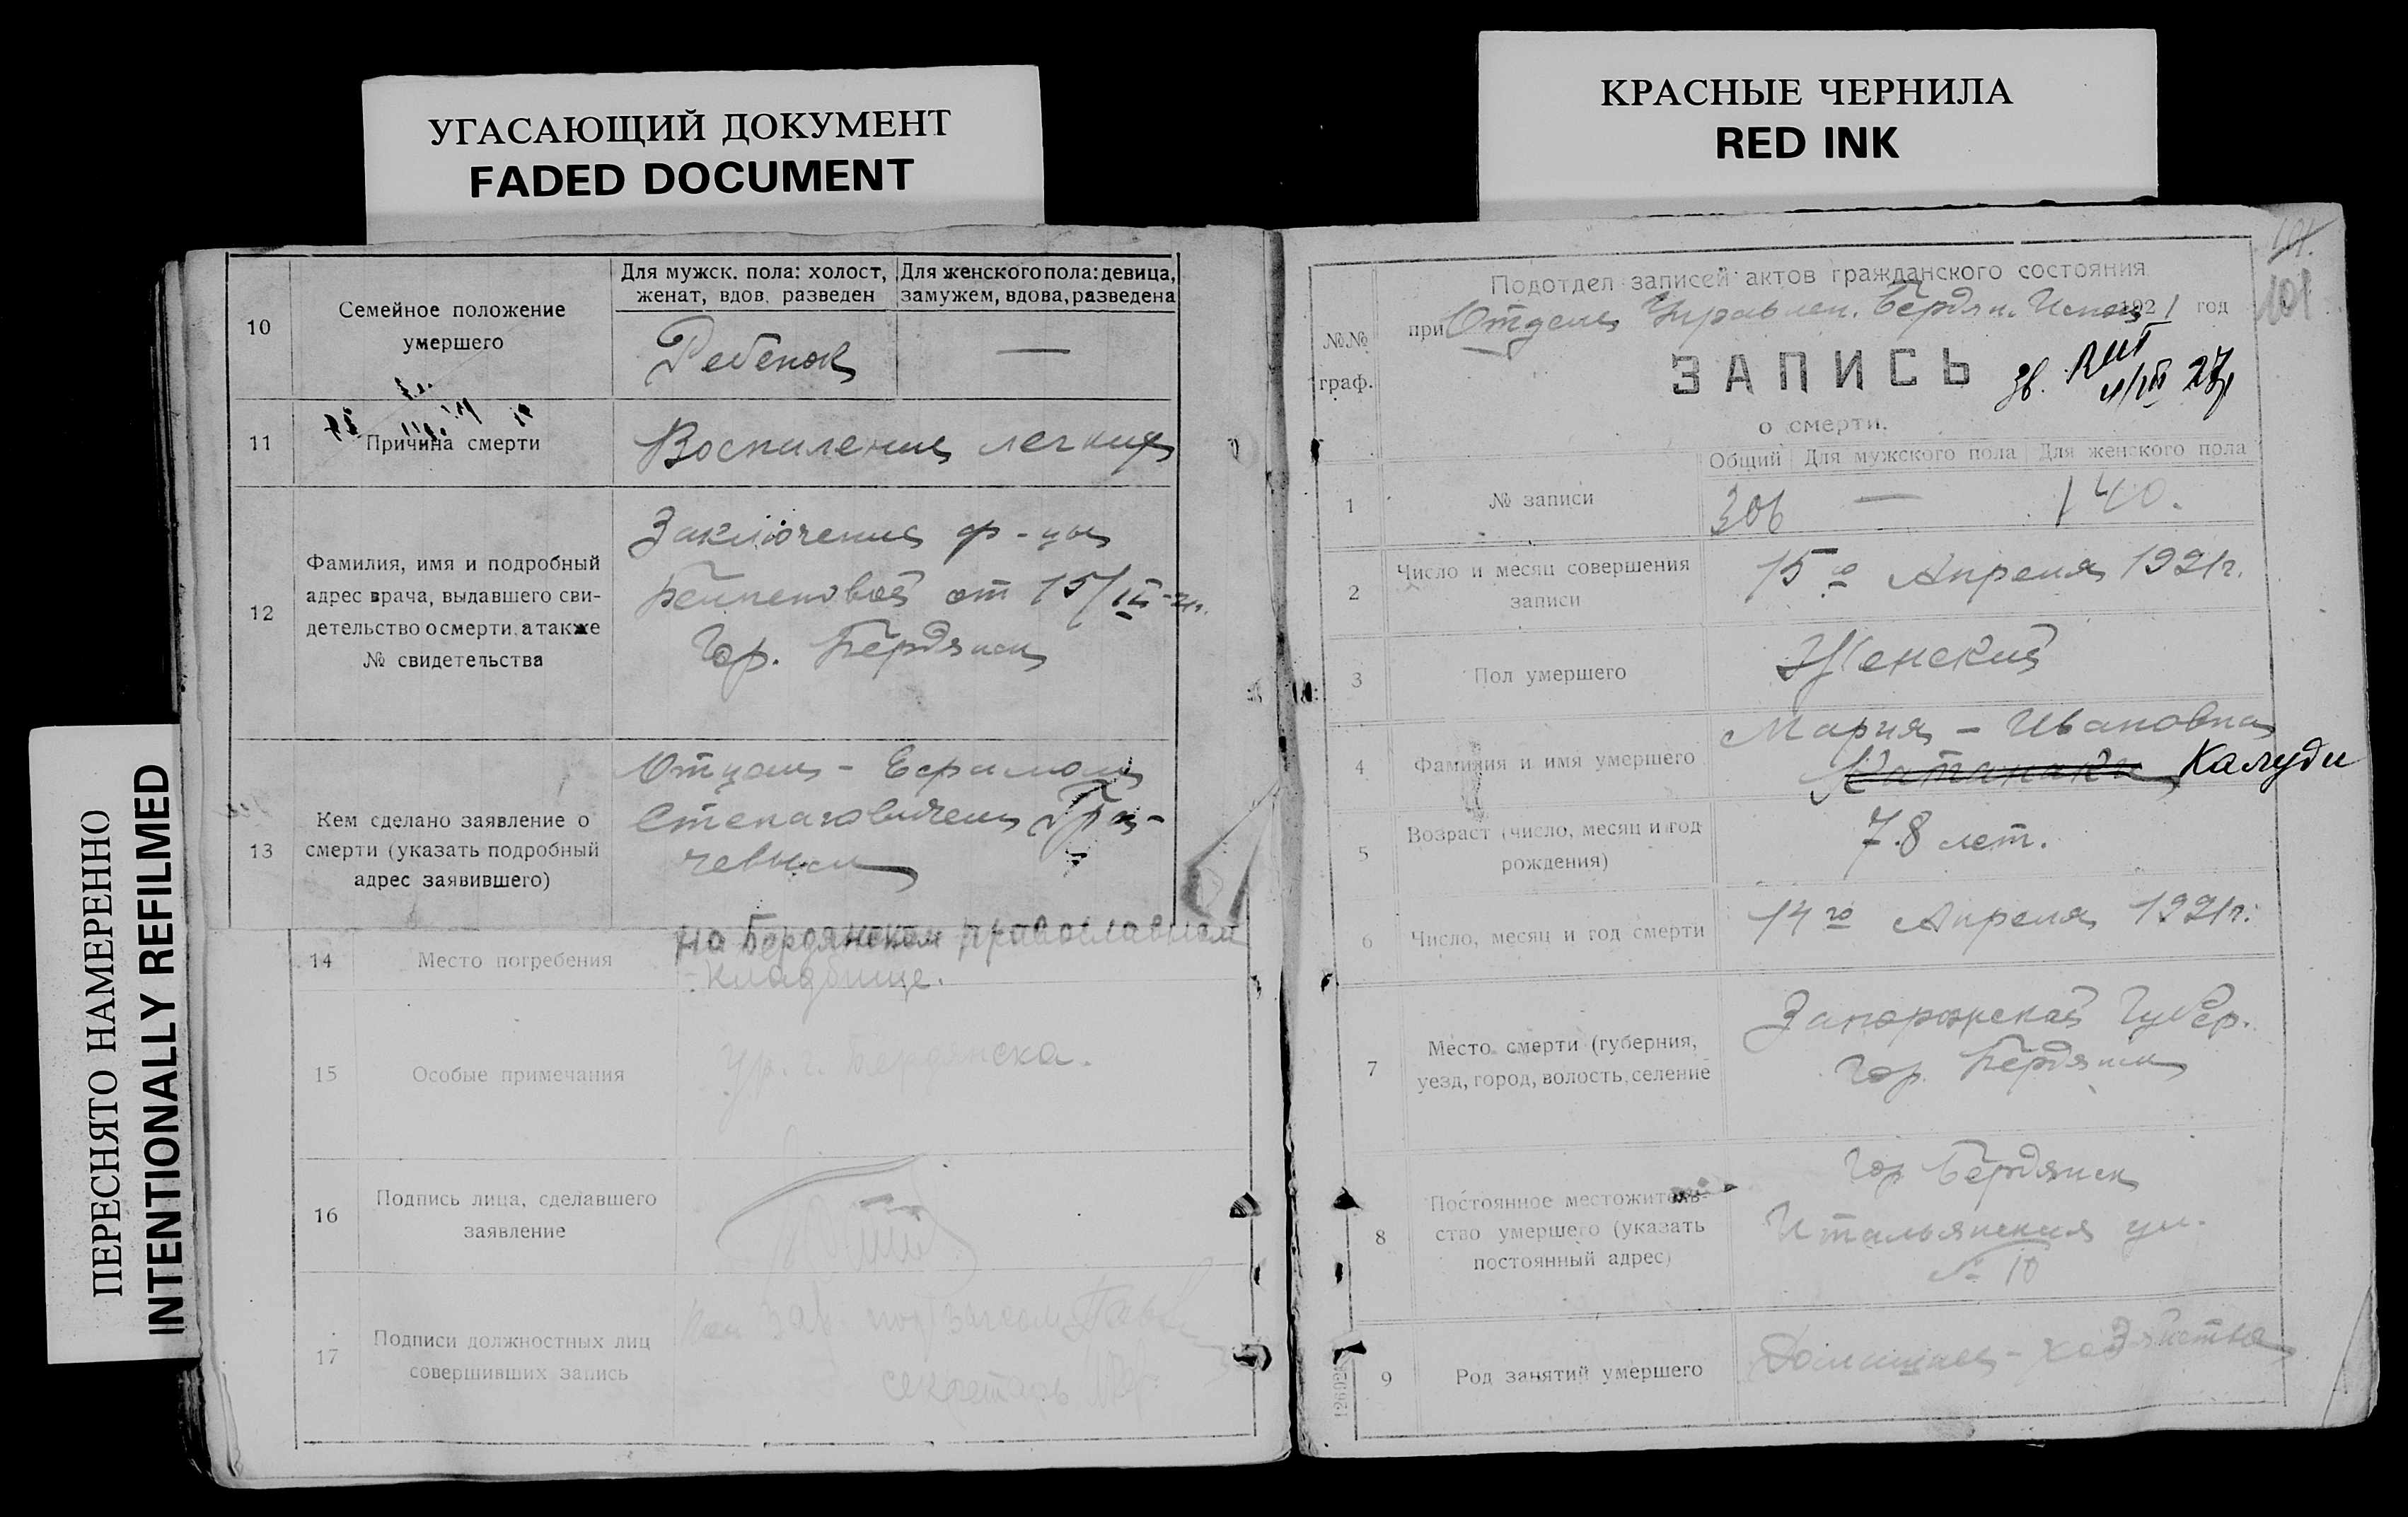 УГАСАЮЩИЙ ДОКУМЕНТ
FADED DOCUMENT
КРАСНЫЕ ЧЕРНИЛА
RED INK
ПЕРЕСНЯТО НАМЕРЕННО
INTENTIONALLY REFILMED
10
Семейное положение
умершего
Для мужск. пола: холост,
женат, вдов, разведен
Для женского пола: девица,
замужем, вдова, разведена
Ребенок
—
11
Причина смерти
Воспиление легких
12
Фамилия, имя и подробный
адрес врача, выдавшего сви-
детельство о смерти, а также
№ свидетельства
Заключение ф-цы
от 15/IV-21г.
Гор. Бердянск
13
Кем сделано заявление о
смерти (указать подробный
адрес заявившего)
Отцом - Ефимом
Степановичем
чевым
14
Место погребения
на Бердянском православном
кладбище.
15
Особые примечания
гр. г. Бердянска.
16
Подпись лица, сделавшего
заявление
17
Подписи должностных лиц
совершивших запись
секретарь
101.
101
№№
граф.
Подотдел записей актов гражданского состояния
при Отделе Управлен. Бердян. 1921 год
ЗАПИСЬ
о смерти.
Общий
Для мужского пола
Для женского пола
1
№ записи
306
—
140.
2
Число и месяц совершения
записи
15го Апреля 1921г.
3
Пол умершего
Женский
4
Фамилия и имя умершего
Мария - Ивановна
Калуди
5
Возраст (число, месяц и год
рождения)
78 лет.
6
Число, месяц и год смерти
14го Апреля 1921г.
7
Место смерти (губерния,
уезд, город, волость, селение
Запорожской Губер.
Гор. Бердянск
8
Постоянное местожитель-
ство умершего (указать
постоянный адрес)
Гор Бердянск
Итальянская ул.
№ 10
9
Род занятий умершего
Домашнее - хозяйство
12692